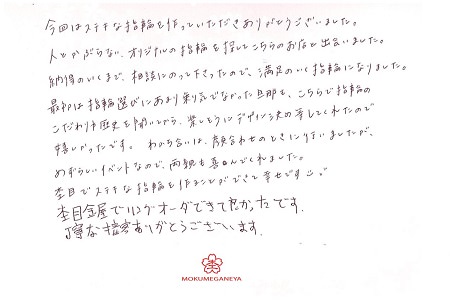 今回はステキな指輪を作っていただきありがとうございました。
人とかぶらない、オリジナルの指輪を探してこちらのお店と出会いました。
納得のいくまで、相談にのって下さったので、満足のいく指輪になりました。
最初は指輪選びにあまり乗り気でなかった旦那も、こちらで指輪の
こだわりや歴史を聞いてから、楽しそうにデザイン決め等してくれたので
嬉しかったです。わかち合いは、顔合わせのときに行いましたが、
めずらしいイベントなので、両親も喜んでくれました。
杢目でステキな指輪を作ることができて幸せです
杢目金屋でリングオーダできてよかったです。
丁寧な接客ありがとうございます。
MOKUMEGANEYA